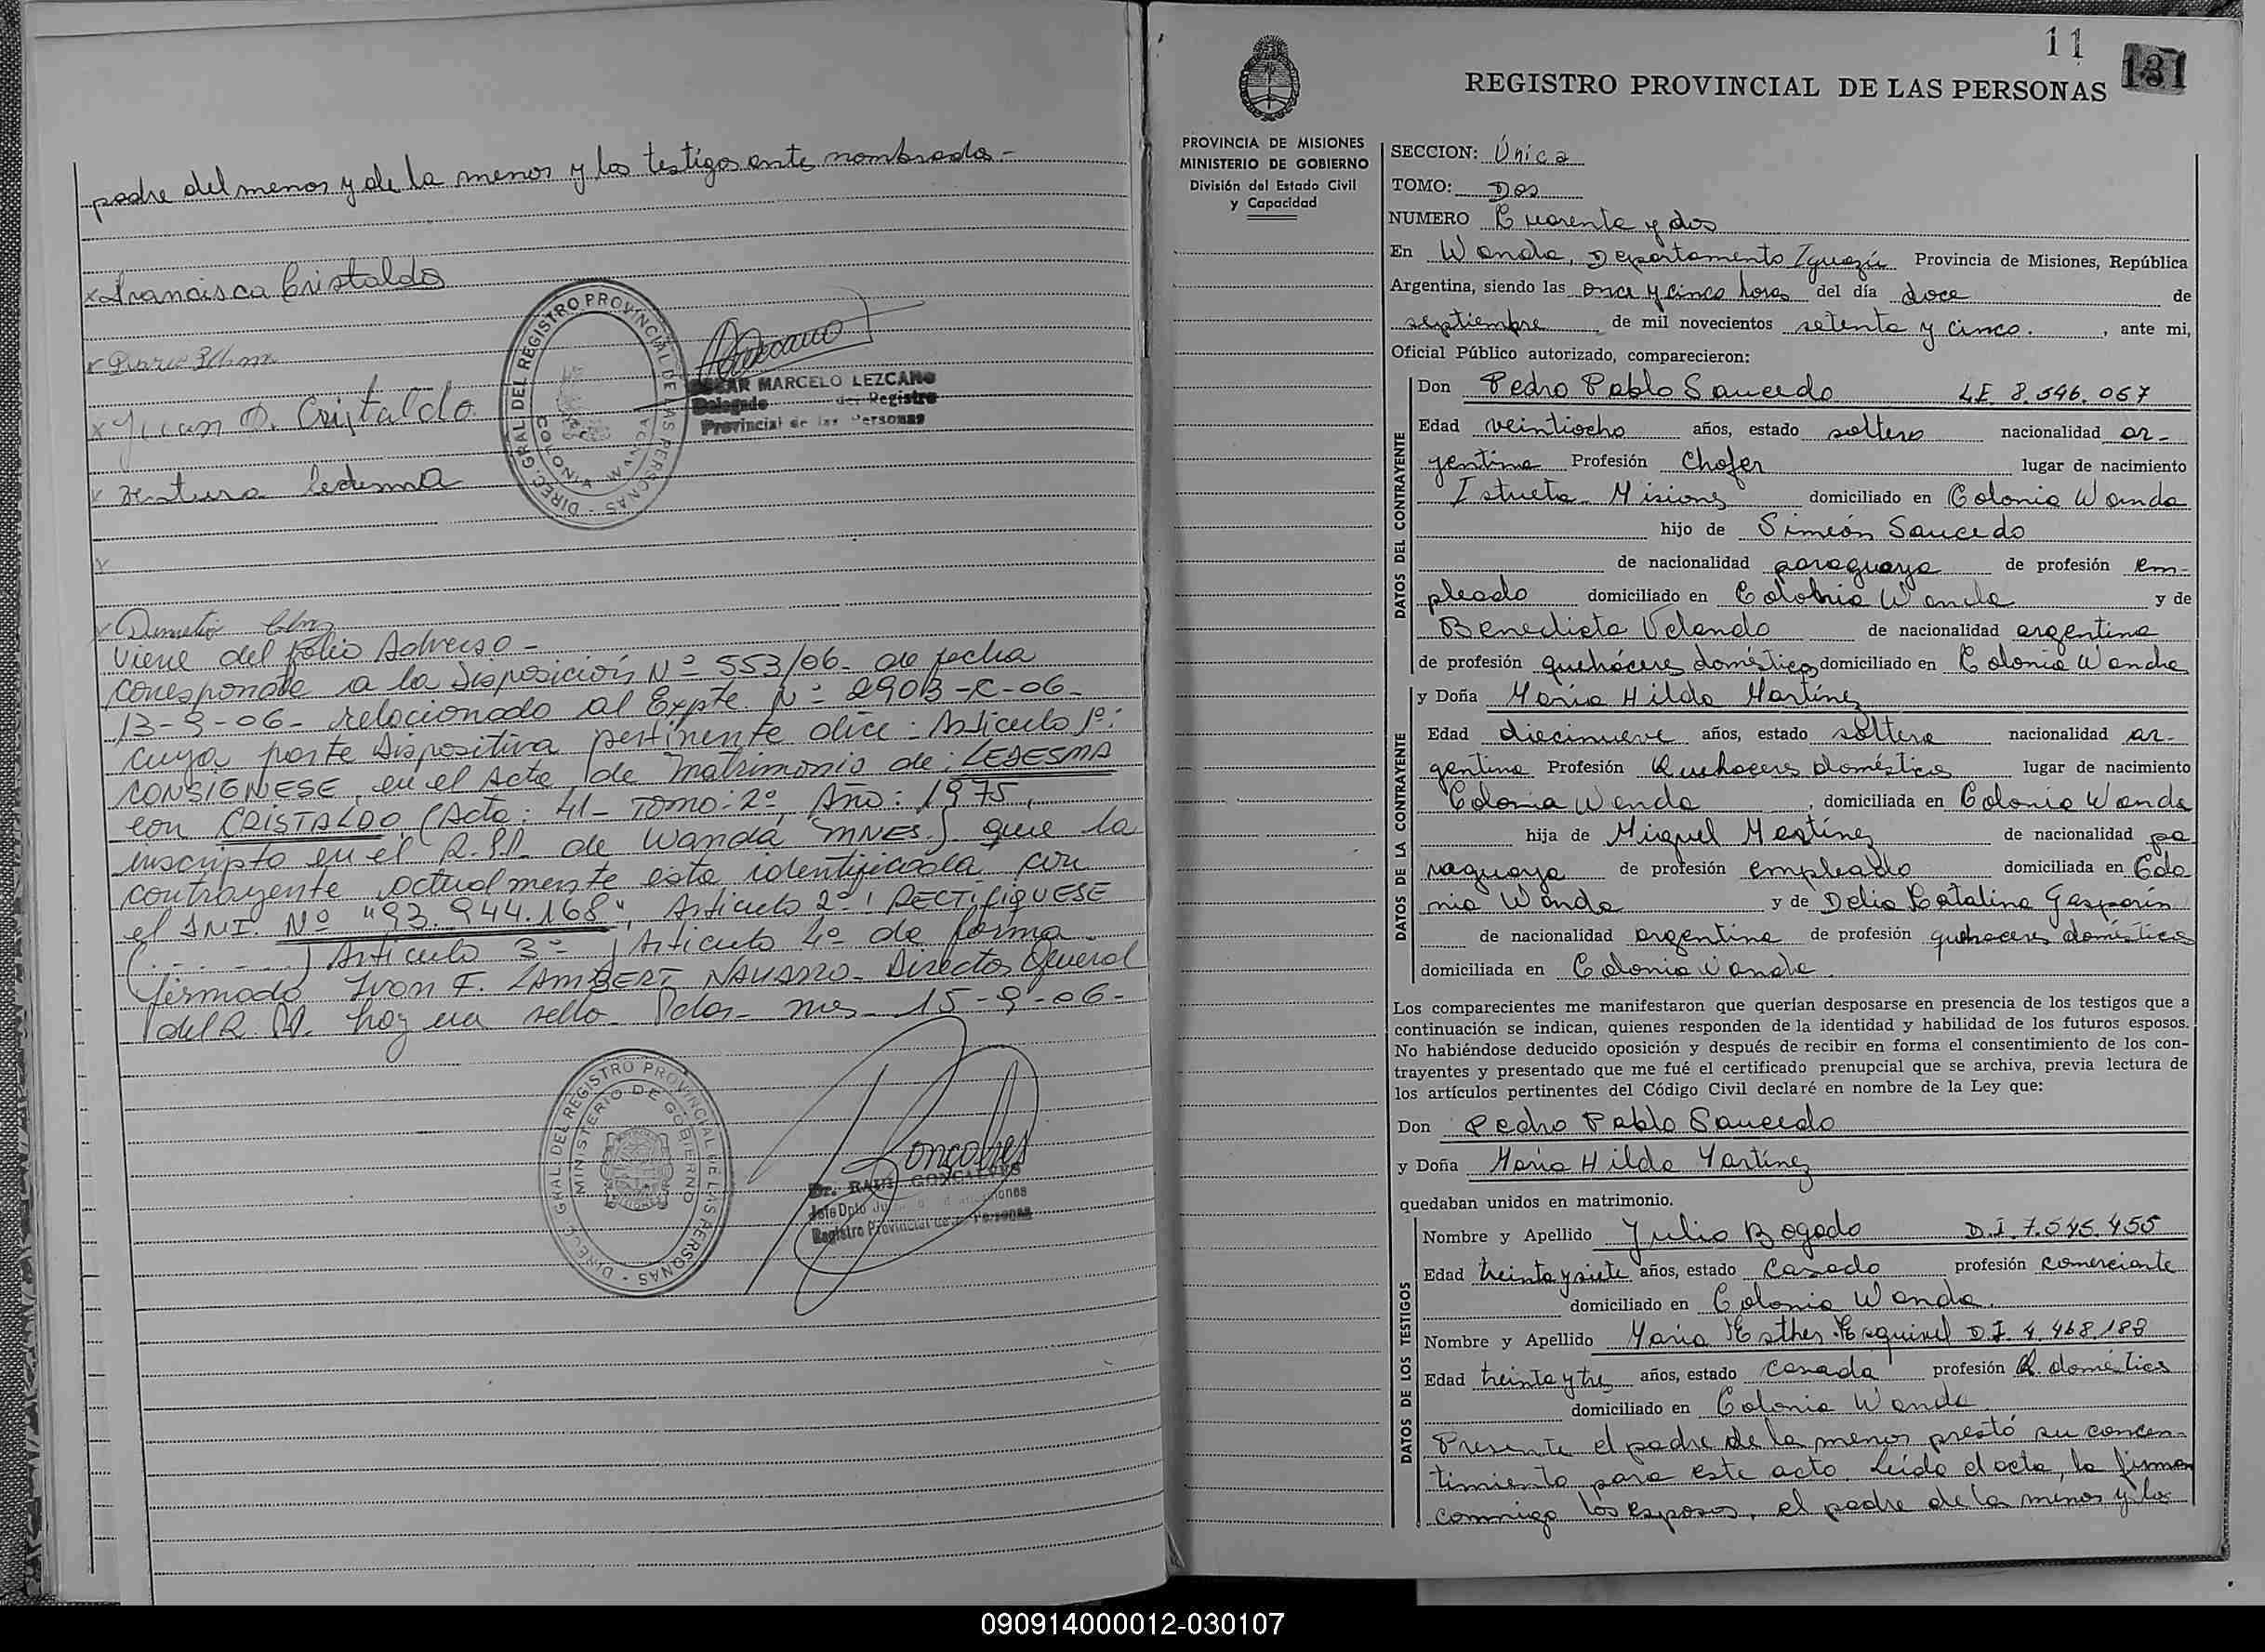 padre del menor y de la menor y los testigos ante nombrados.-
x Francisca Cristaldo
x Juan D. Cristaldo
x Ventura Ledesma
x
x Demetrio
DIREC. GRAL. DEL REGISTRO PROVINCIAL DE LAS PERSONAS
COLONIA WANDA
OSCAR MARCELO LEZCANO
Delegado del Registro
Provincial de las Personas
Viene del folio Adverso -
Corresponde a la Disposición Nº 553/06- de fecha
13-9-06- relacionado al Expte. Nº 2903-R-06-
cuya parte Dispositiva pertinente dice: Artículo 1º:
CONSIGNESE, en el Acta de Matrimonio de: LEDESMA
con CRISTALDO, (Acta: 41- Tomo: 2º, Año: 1975,
inscripto en el R.P.P. de Wanda MNES.) que la
contrayente actualmente esta identificada con
el DNI. Nº "93.944.168", Artículo 2º: RECTIFIQUESE
(. - . . . . .) Artículo 3º, Artículo 4º de forma.
firmado Ivon F. LAMBERT NAVARRO- Director General
del R.P.P. hay un sello- Pdas- mes- 15-9-06-
DIREC. GRAL. DEL REGISTRO PROVINCIAL DE LAS PERSONAS
MINISTERIO DE GOBIERNO
MISIONES
Goncalves
Dr. RAUL GONCALVES
Jefe Dpto
Registro Provincial de las Personas
11
131
REGISTRO PROVINCIAL DE LAS PERSONAS
PROVINCIA DE MISIONES
MINISTERIO DE GOBIERNO
División del Estado Civil
y Capacidad
SECCION: Única
TOMO: Dos
NUMERO Cuarenta y dos
En Wanda, Departamento Iguazú Provincia de Misiones, República
Argentina, siendo las once y cinco horas del día doce de
septiembre de mil novecientos setenta y cinco. , ante mi,
Oficial Público autorizado, comparecieron:
DATOS DEL CONTRAYENTE
Don Pedro Pablo Saucedo L.E. 8.546.067
Edad veintiocho años, estado soltero nacionalidad ar-
gentina Profesión Chofer lugar de nacimiento
Istueta Misiones domiciliado en Colonia Wanda
hijo de Simeón Saucedo
de nacionalidad paraguaya de profesión em-
pleado domiciliado en Colonia Wanda y de
Benedicta Velando de nacionalidad argentina
de profesión quehaceres domésticos domiciliado en Colonia Wanda
DATOS DE LA CONTRAYENTE
y Doña María Hilda Martínez
Edad diecinueve años, estado soltera nacionalidad ar-
gentina Profesión Quehaceres domésticos lugar de nacimiento
Colonia Wanda , domiciliada en Colonia Wanda
hija de Miguel Martínez de nacionalidad pa
raguaya de profesión empleado domiciliada en Colo
nia Wanda y de Delia Catalina Gasparín
de nacionalidad argentina de profesión quehaceres domésticos
domiciliada en Colonia Wanda.
Los comparecientes me manifestaron que querían desposarse en presencia de los testigos que a
continuación se indican, quienes responden de la identidad y habilidad de los futuros esposos.
No habiéndose deducido oposición y después de recibir en forma el consentimiento de los con-
trayentes y presentado que me fué el certificado prenupcial que se archiva, previa lectura de
los artículos pertinentes del Código Civil declaré en nombre de la Ley que:
Don Pedro Pablo Saucedo
y Doña María Hilda Martínez
quedaban unidos en matrimonio.
DATOS DE LOS TESTIGOS
Nombre y Apellido Julio Bogado D.I. 7.545.455
Edad treinta y siete años, estado casado profesión comerciante
domiciliado en Colonia Wanda.
Nombre y Apellido María Esther Esquivel D.I. 4.468.188
Edad treinta y tres años, estado casada profesión Q. domésticos
domiciliado en Colonia Wanda.
Presente el padre de la menor prestó su concen-
timiento para este acto. Leída el acta, la firman
conmigo los esposos, el padre de la menor y los
090914000012-030107